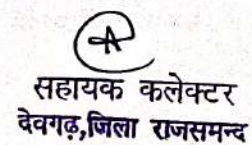 सहायक कलेक्टर
देवगढ़,जिला राजसमन्द